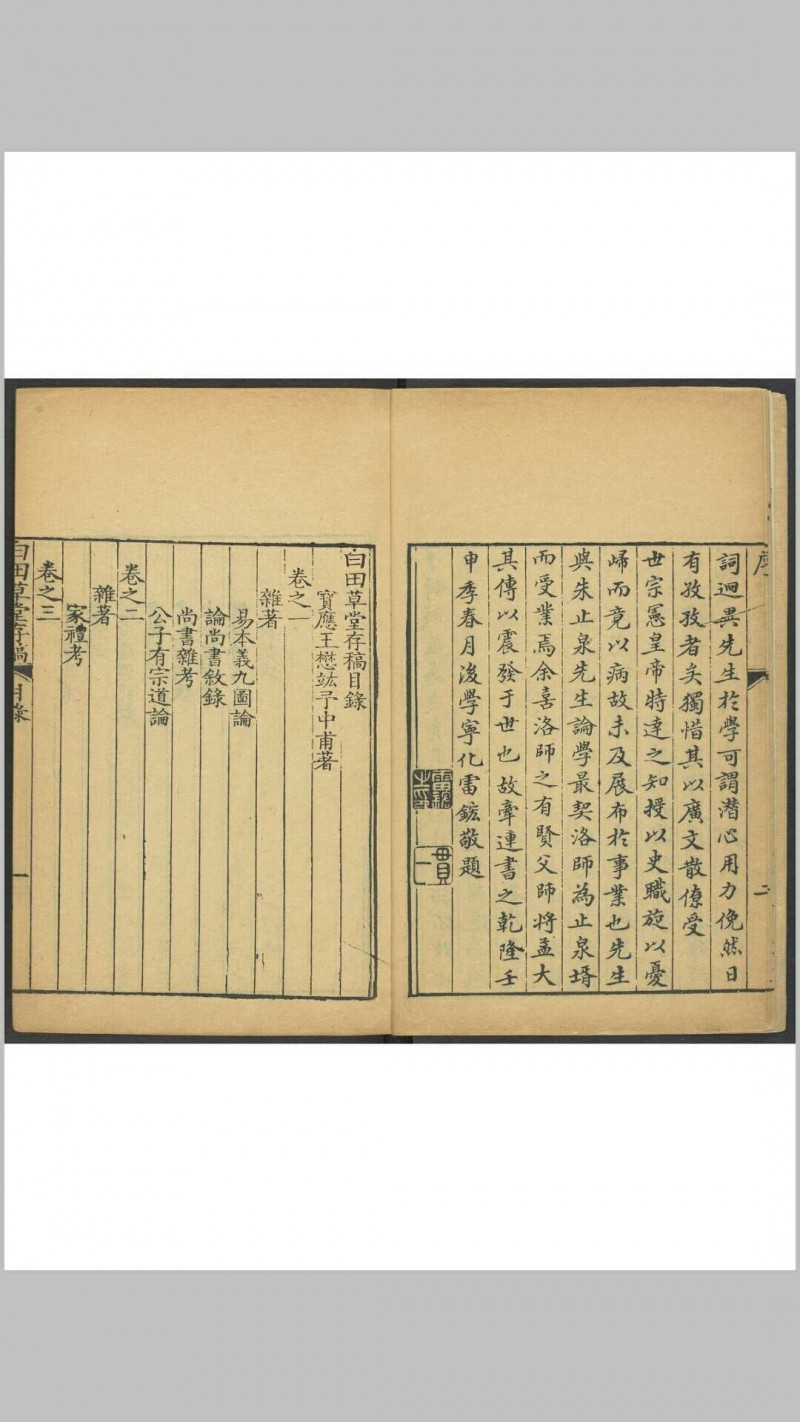 序
二
詞迥異先生於學可謂潛心用力俛然日
有孜孜者矣獨惜其以廣文散僚受
世宗憲皇帝特達之知授以史職旋以憂
歸而竟以病故未及展布於事業也先生
與朱止泉先生論學最契洛師為止泉壻
而受業焉余喜洛師之有賢父師將孟大
其傳以震發于世也故牽連書之乾隆壬
申季春月後學寧化雷鋐敬題
貫一
白田草堂存稿目錄
寶應王懋竑予中甫著
卷之一
雜著
易本義九圖論
論尚書敘錄
尚書雜考
公子有宗道論
卷之二
雜著
家禮考
卷之三
白田草堂存稿
目錄
一